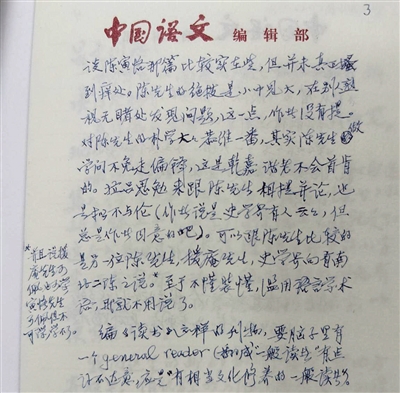 3
中国语文 编辑部
谈陈寅恪那篇比较实在些,但并未真正搔
到痒处。陈先生的绝技是小中见大,在别人熟
视无睹处发现问题,这一点,作者没有提。
对陈先生的朴学大大恭维一番,其实陈先生做
学问不免走偏锋,这是乾嘉诸老不会首肯
的。拉吕思勉来跟陈先生相提并论,也
是拟不与伦(作者说是史学界有人云云,但
总是作者同意的吧)。可以跟陈先生比较的
是另一位陈先生,援庵先生,史学界向有南
北二陈之说。*至于不懂装懂,滥用语言学术
语,那就不用说了。
编《读书》这样的刊物,要脑子里有
一个general reader(翻成“一般读者”有点
词不达意,应是“有相当文化修养的一般读者”
*并且说援
庵先生可
学寅恪先生
不可学